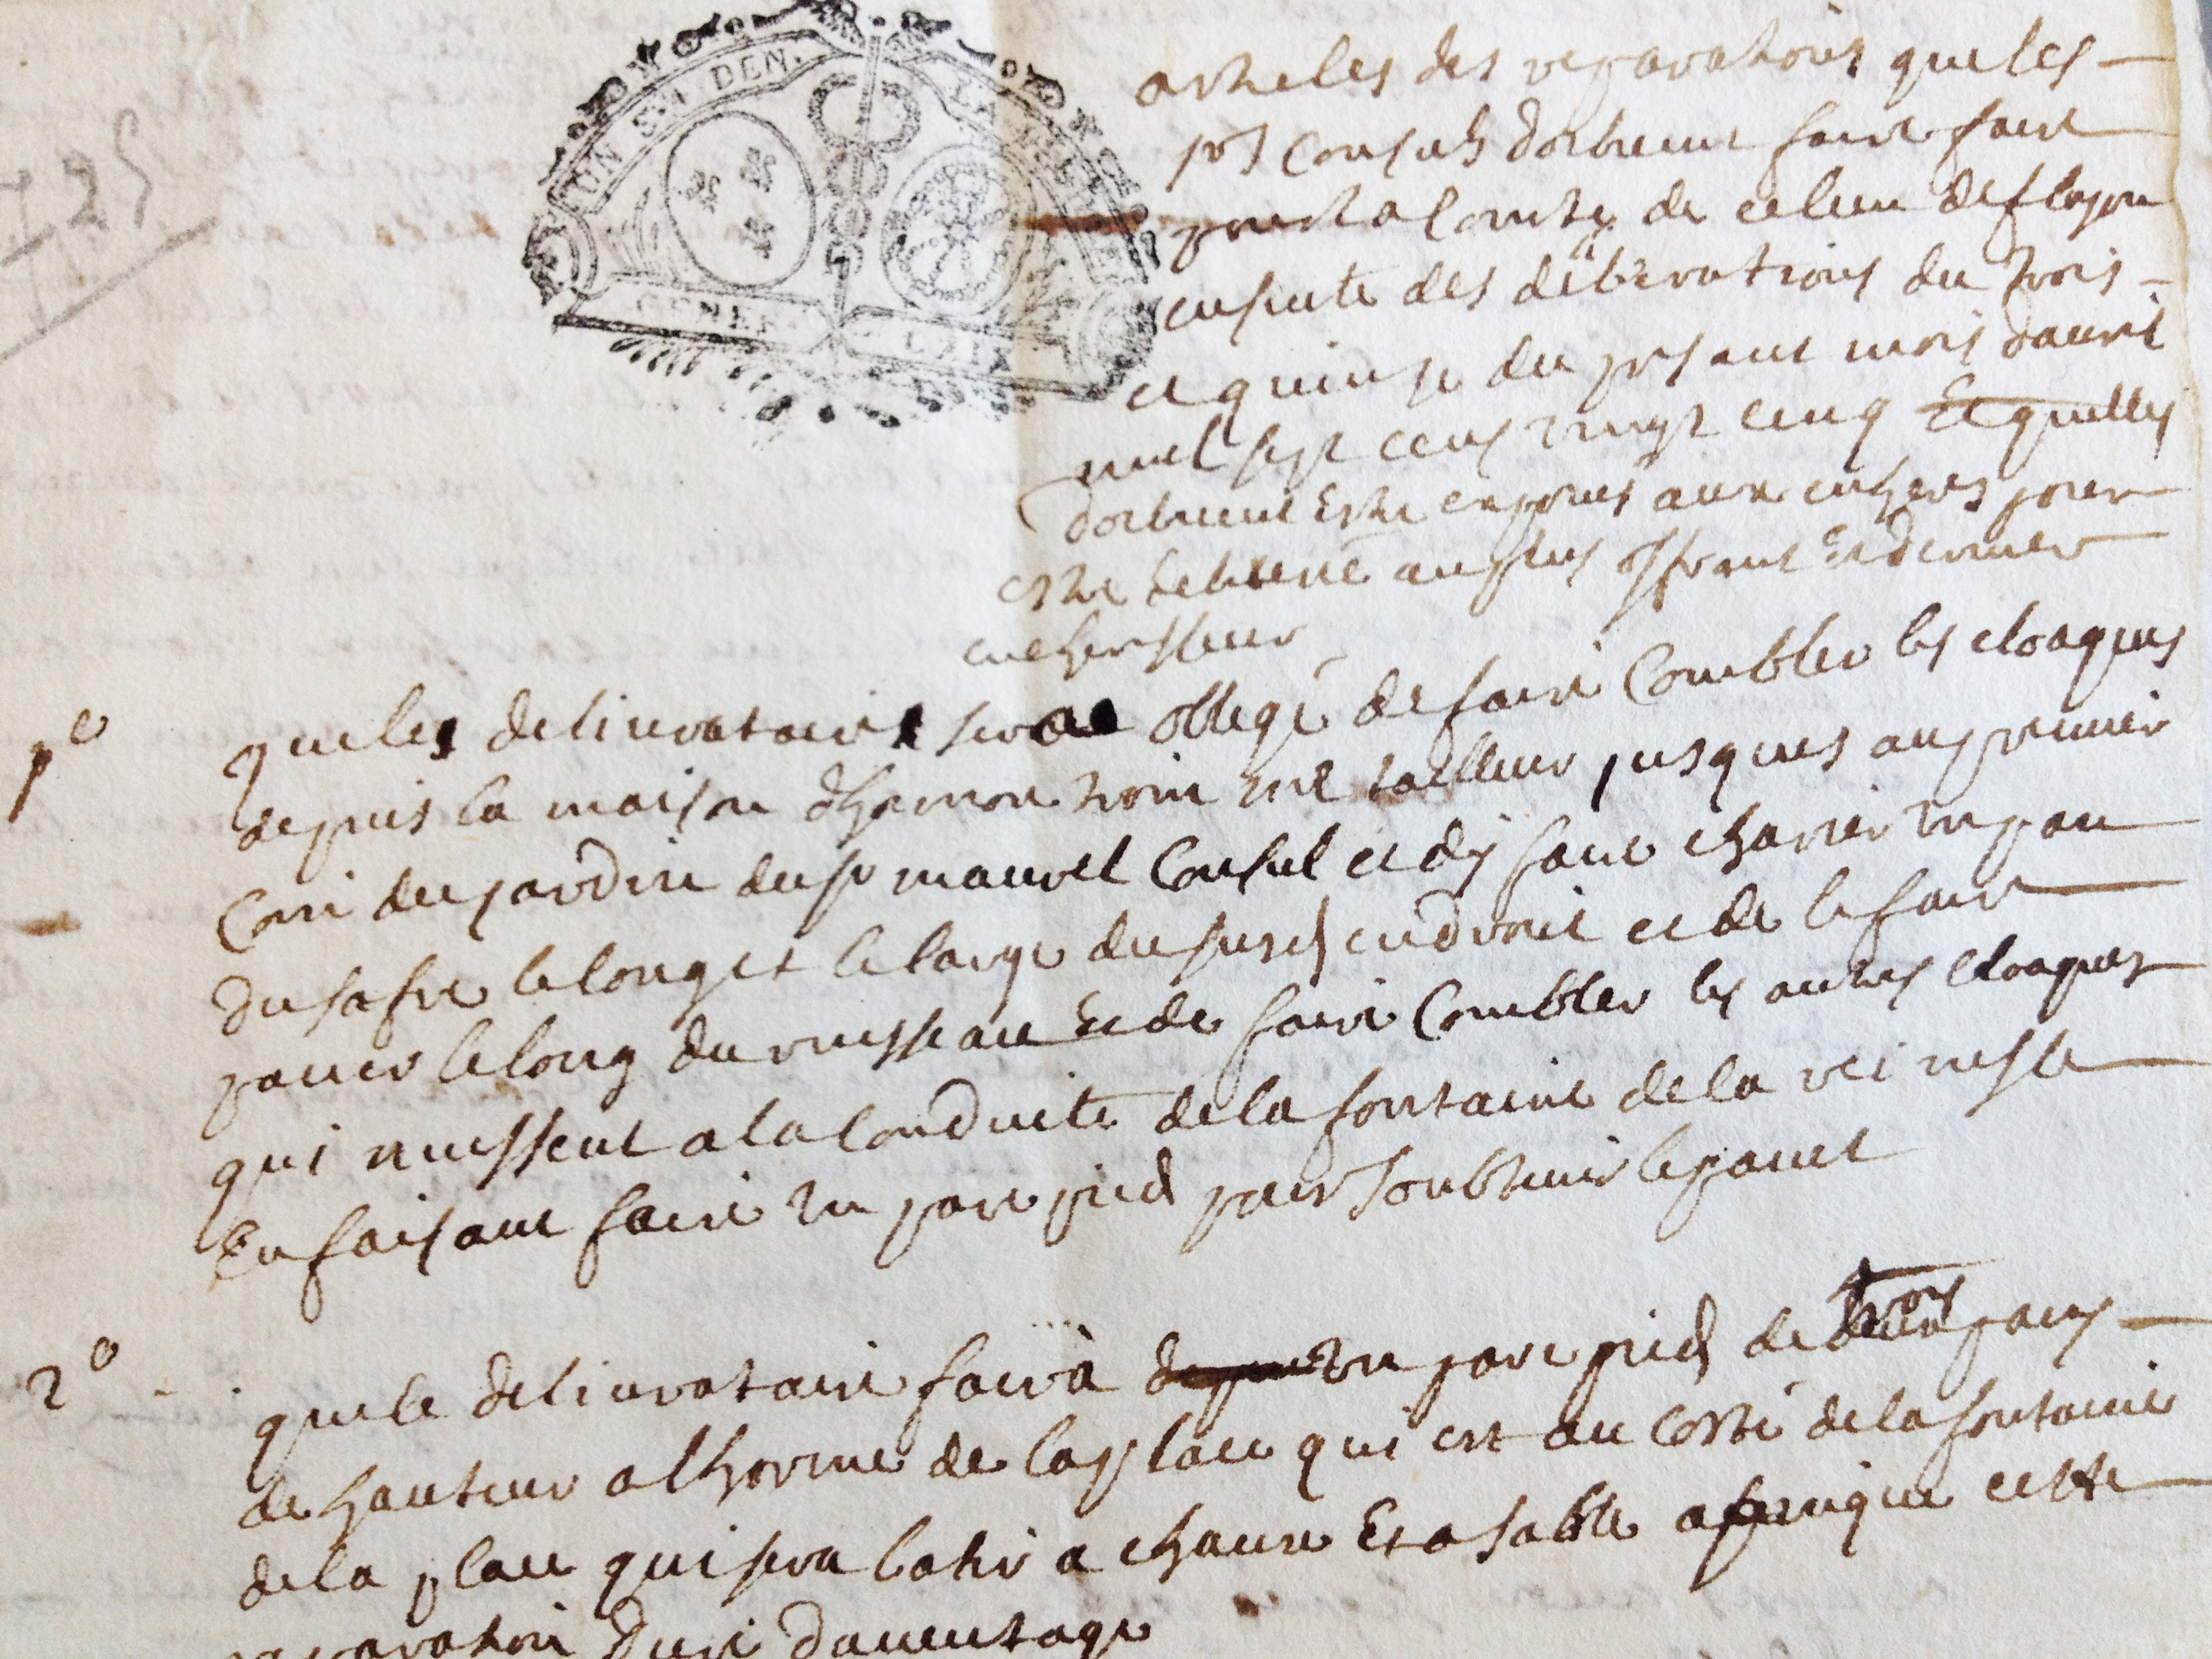 725
UN SOL DEN. LA FEUILLE
GENER
articles des reparations que les
srs consuls doibuent faire faire
pour la comte de ce lieu de flayou
ensuite des deliberations du trois
et quinse du present mois dauril
mil sept cens vingt cinq Et quelles
doibuent Estre exposes aux encheres pour
estre deliuré au plus offrant Et dernier
encherisseur
1o
que les deliurataire sera obligé de faire Combler les cloaques
depuis la maison d'honnore me tailleur jusques au premier
Coin du jardin du sr maurel Consul et dy faire charier un pan
du safre le long et le large du susd endroit et de le faire
pauer le long du ruisseau Et de faire Combler les autres cloaques
qui nuissent a la Conduite de la fontaine de la
En faisant faire un pare pied pour soubtenir le paué
2o
que le deliurataire faira un pare pied de trois pans
de hauteur a lhorme de la place qui est au costé de la fontaine
de la place qui sera batir a chaux Et a sable afin que cette
reparation dure dauentage